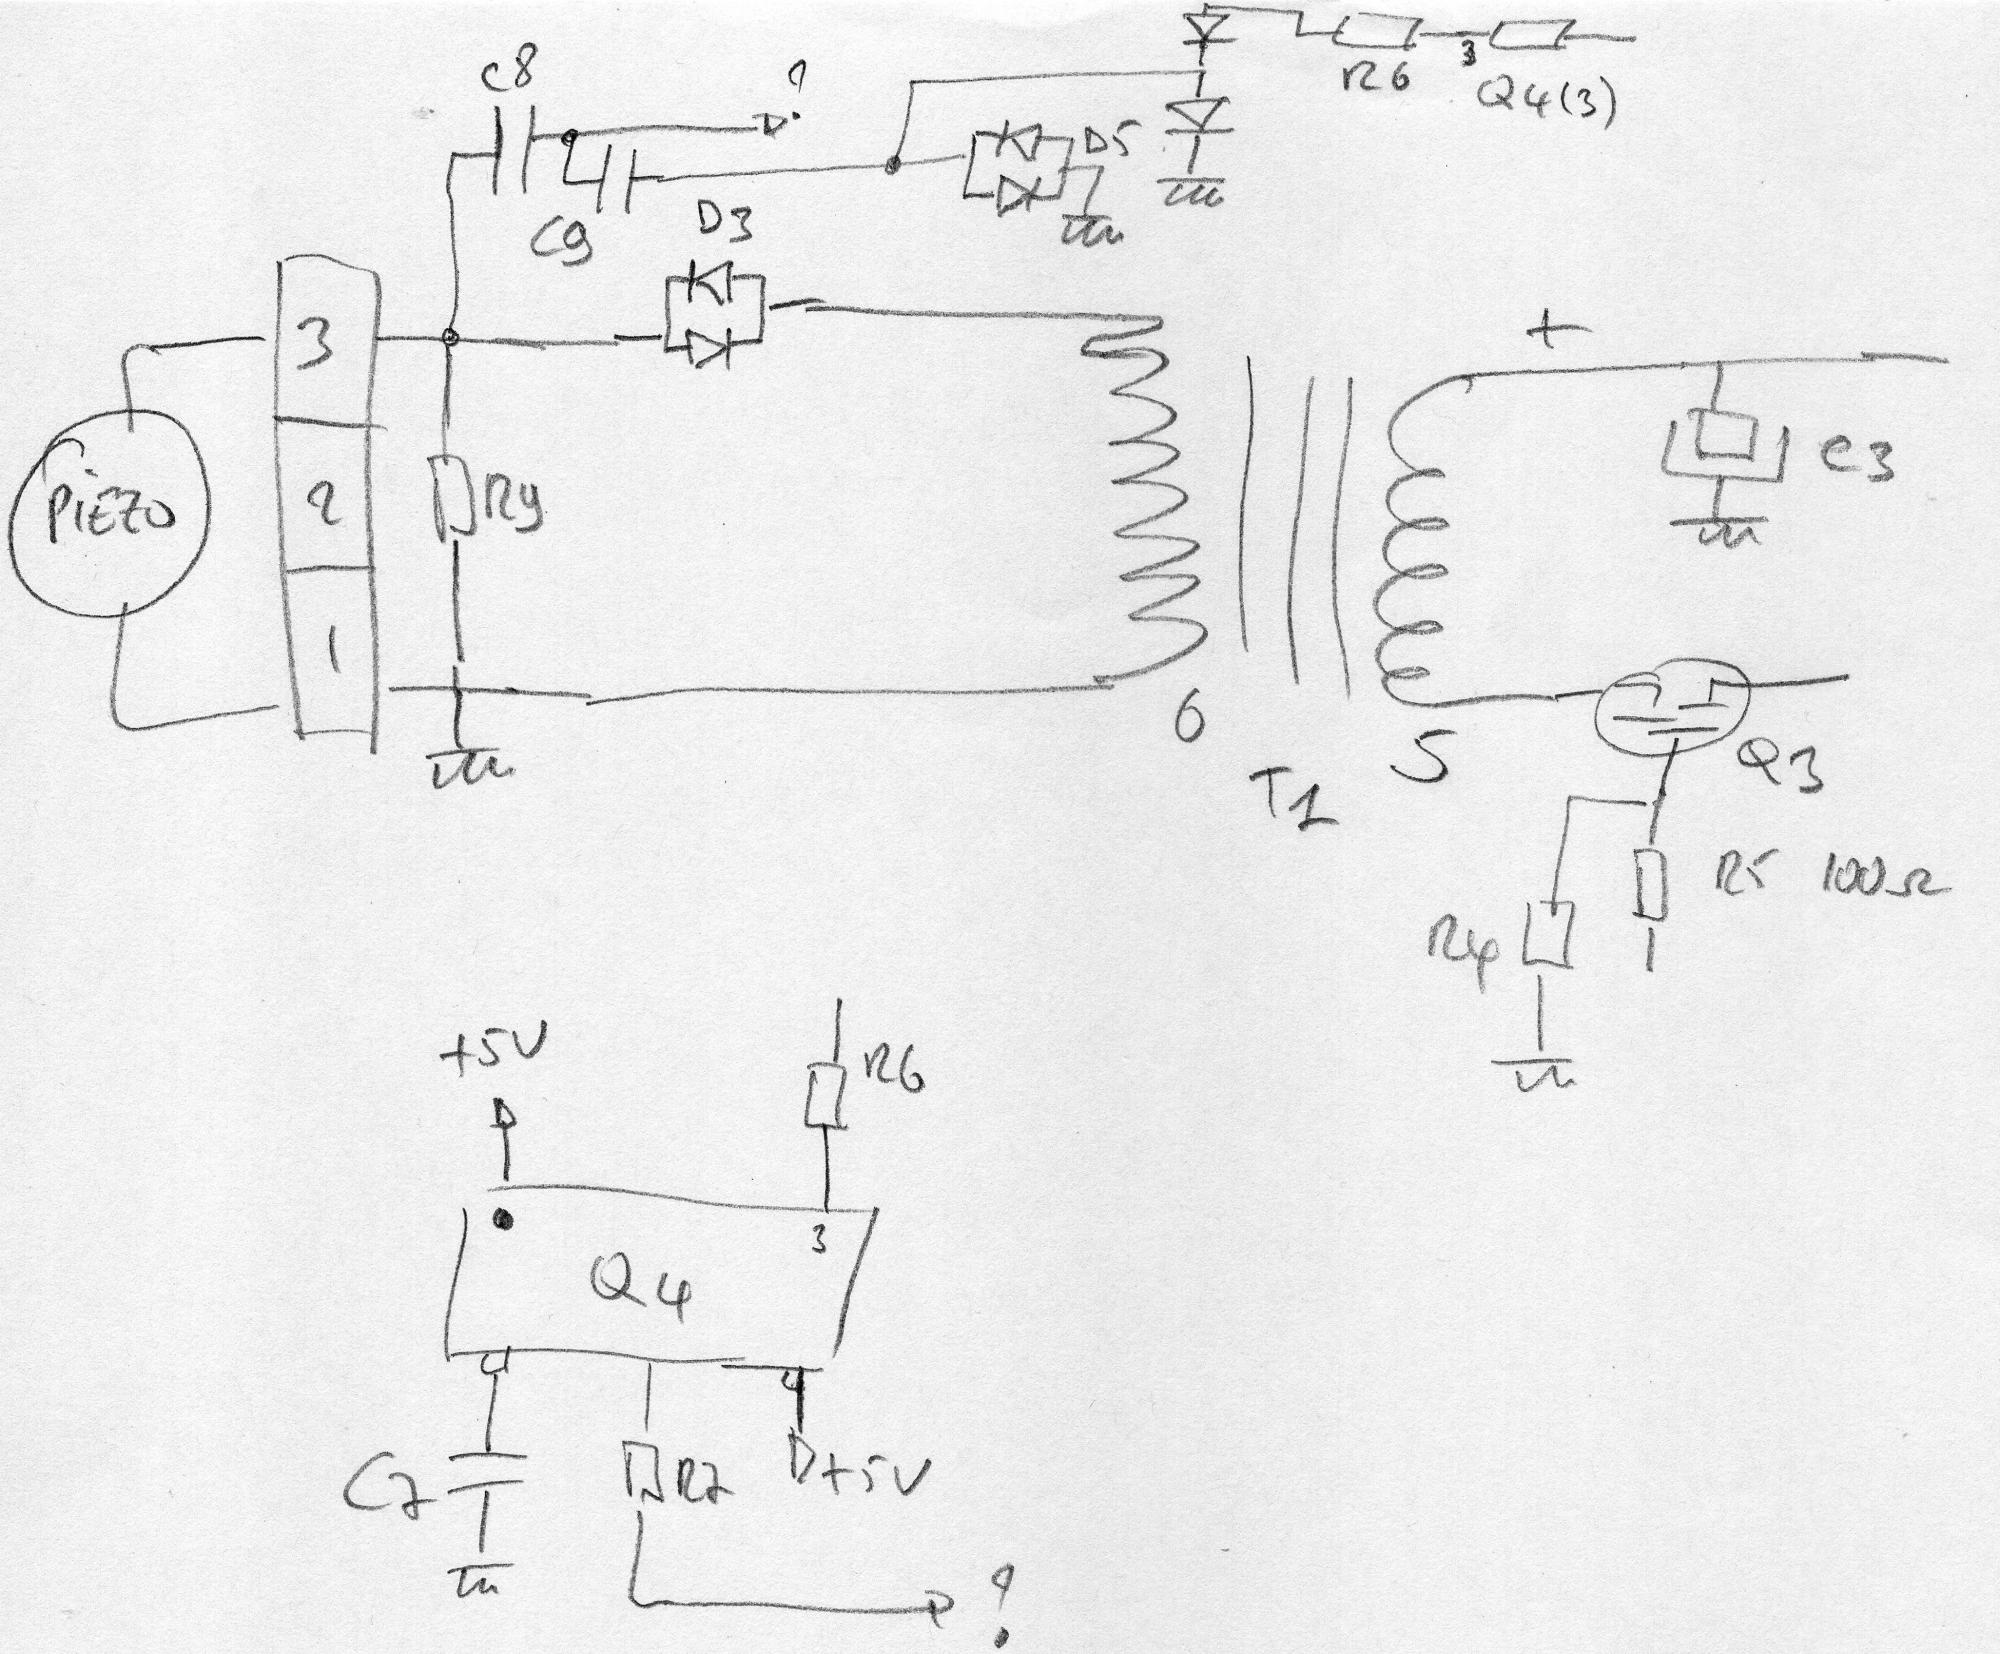 C8
?
3
R6
Q4(3)
D5
C9
D3
3
+
PiEZO
2
R9
C3
1
6
5
Q3
T1
R5 100Ω
R4
+5V
R6
3
Q4
4
C7
R7
+5V
?